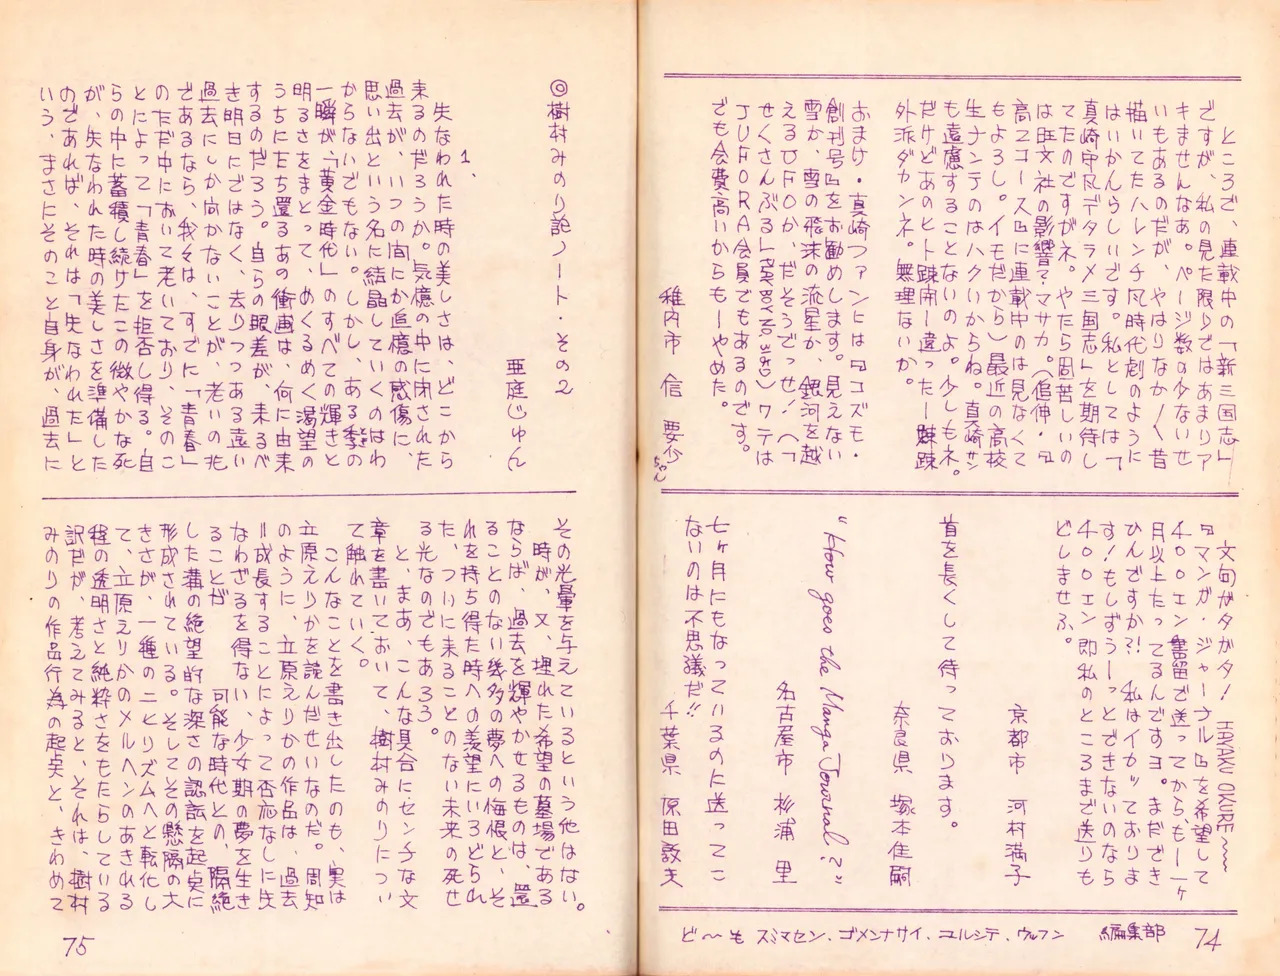 ところで、連載中の「新三国志」
ですが、私の見た限りではあまりア
キませんなあ。ページ数の少ないせ
いもあるのだが、やはりなか〳〵昔
描いてたハレンチ風時代劇のように
はいかんらしいです。私としては「
真崎守凡デタラメ三国志」を期待し
てたのですがネ。やたら固苦しいの
は旺文社の影響? マサカ。(追伸・『
高2コース』に連載中のは見なくて
もよろし。イモだから)最近の高校
生ナンテのはハクいからね。真崎サン
も遠慮することないのよ。少しもネ。
だけどあのヒト疎開ー違ったー疎疎
外派ダカンネ。無理ないか。
おまけ・真崎ファンには『コズモ・
創刊号』をお勧めします。見えない
雪か、雪の飛沫の流星か、銀河を越
えるUFOか、だそうでっせ!(「
せくさんぶる」)ワテは
JUFORA会員でもあるのです。
でも会費高いからもーやめた。
稚内市 信 要少ちゃん
文句がタがタ! HAYAKU OKURE〜〜〜
『マンガ・ジャーナル』を希望して
400エン書留で送ってから、もー一ヶ
月以上たってるんですヨ。まだでき
ひんですか?! 私はイカッておりま
す!もしずうーっとできないのなら
400エン即私のところまで送りも
どしませふ。
京都市 河村満子
首を長くして待っております。
奈良県 塚本佳嗣
"How goes the Manga Journal?"
名古屋市 杉浦 里
七ヶ月にもなっているのに送ってこ
ないのは不思議だ!!
千葉県 原田敦夫
ど〜も スミマセン、ゴメンナサイ、ユルシテ、ウッフン 編集部 74
◎樹村みのり論ノート・その2
亜庭じゅん
1、
失なわれた時の美しさは、どこから
来るのだろうか。気憶の中に閉された
過去が、いつの間にか追憶の感傷に、
思い出という名に結晶していくのはわ
からないでもない。しかし、ある季(とき)の
一瞬が「黄金時代」のすべての輝きと
明るさをまとって、めくるめく渇望の
うちにたち還るあの衝画は、何に由来
するのだろう。自らの眼差が、来るべ
き明日にではなく、去りつつある遠い
過去にしか向かないことが、老いの兆
であるなら、我々は、すでに「青春」
のただ中において老いており、そのこ
とによって「青春」を拒否し得る。自
らの中に蓄積し続けたこの微やかな死
が、失なわれた時の美しさを準備した
のであれば、それは「失なわれた」と
いう、まさにそのこと自身が、過去に
その光暈を与えているという他はない。
時が、又、埋れた希望の墓場である
ならば、過去を輝やかせるものは、還
ることのない幾多の夢への悔恨と、そ
れを持ち得た時への羨望にいろどられ
た、ついに来ることのない未来の死せ
る光なのでもあろう。
と、まあ、こんな具合にセンチな文
章を書いておいて、樹村みのりについ
て触れていく。
こんなことを書き出したのも、実は
立原えりかを読んだせいなのだ。周知
のように、立原えりかの作品は、過去
=成長することによって否応なしに失
なわざるを得ない、少女期の夢を生き
ることが 可能な時代との、隔絶
した溝の絶望的な深さの認訟を起点に
形成されている。そしてその懸隔の大
きさが、一種のニヒリズムへと転化し
て、立原えりかのメルヘンのあきれる
程の透明さと純粋さをもたらしている
訳だが、考えてみると、それは、樹村
みのりの作品行為の起点と、きわめて
75